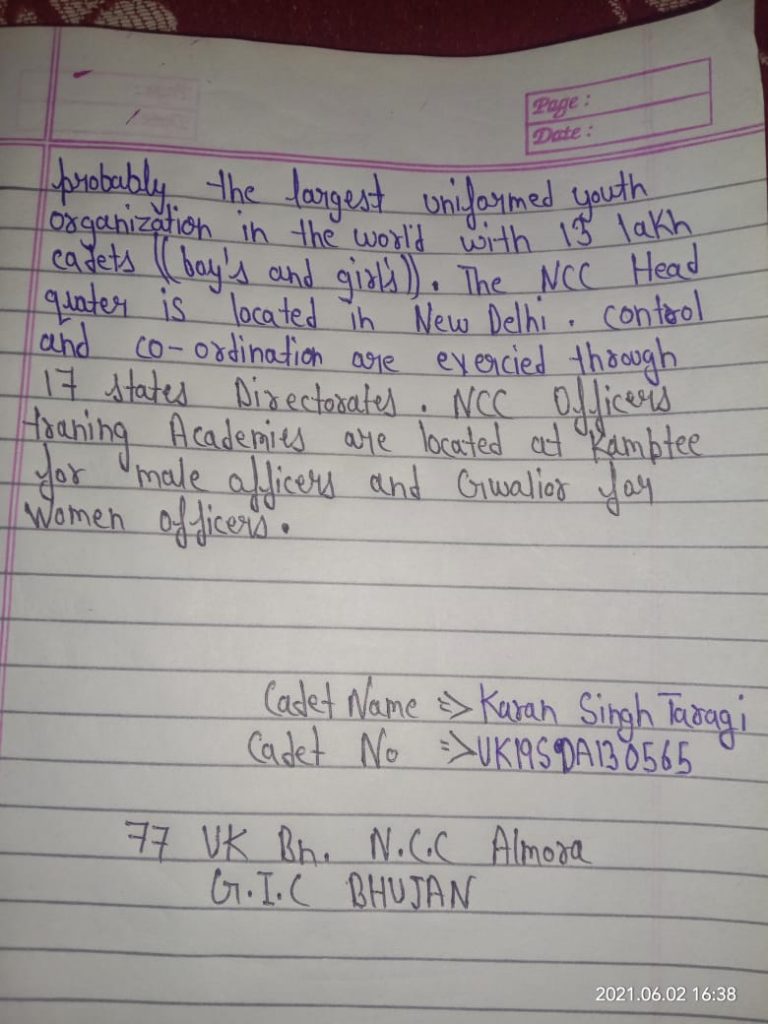 Page:
Date:
probably the largest uniformed youth
organization in the world with 13 lakh
cadets ((boy's and girl's)). The NCC Head
quater is located in New Delhi. control
and co-ordination are exercied through
17 states Directorates. NCC Officers
traning Academies are located at Kamptee
for male officers and Gwalior for
Women officers.
Cadet Name => Karan Singh Taragi
Cadet No => UK19SDA130565
77 UK Bn. N.C.C Almora
G.I.C BHUJAN
2021.06.02 16:38